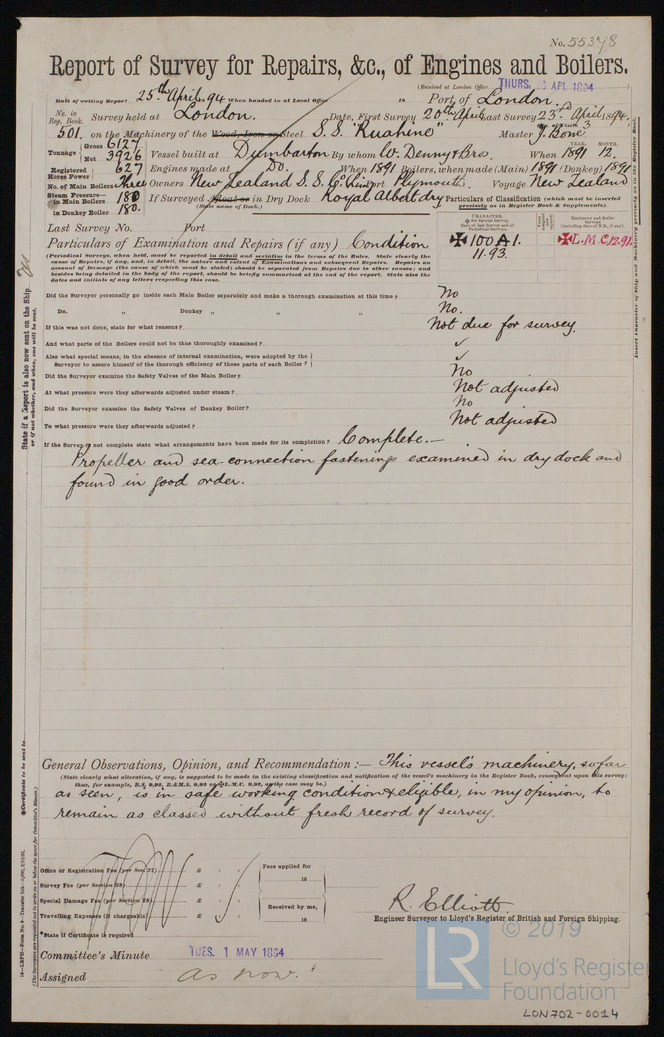 No. 55378
Report of Survey for Repairs, &c., of Engines and Boilers.
(Received at London Office THURS. APL 1894
Date of writing Report 25th April. 94 When handed in at Local Office 18 Port of London.
No. in Reg. Book. Survey held at London. Date, First Survey 20th April Last Survey 23rd April 1894.
501. on the Machinery of the Wood, Iron or Steel S.S. "Ruahine" Master J. Bone
Tonnage Gross 6127
Net 3926 Vessel built at Dumbarton By whom W. Denny & Bros. When YEAR. 1891 MONTH. 12.
Registered Horse Power 627 Engines made at Do. When 1891 Boilers, when made (Main) 1891 (Donkey) 1891
No. of Main Boilers Three Owners New Zealand S. S. Co. Port Plymouth. Voyage New Zealand
Steam Pressure in Main Boilers 180 If Surveyed Afloat or in Dry Dock Royal Albert dry
in Donkey Boiler 180. (State name of Dock.)
Particulars of Classification (which must be inserted precisely as in Register Book & Supplements).
Last Survey No. Port
Particulars of Examination and Repairs (if any) Condition
CHARACTER.
✠ 100 A 1.
11.93.
Machinery and Boiler Surveys
✠ L.M.C. 12.91
(Periodical Surveys, when held, must be reported in detail and seriatim in the terms of the Rules. State clearly the
cause of Repairs, if any, and, in detail, the nature and extent of Examinations and subsequent Repairs. Repairs on
account of Damage (the cause of which must be stated) should be separated from Repairs due to other causes; and
besides being detailed in the body of the report, should be briefly summarised at the end of the report. State also the
dates and initials of any letters respecting this case.
Did the Surveyor personally go inside each Main Boiler separately and make a thorough examination at this time? No
Do. " Donkey " " " No.
If this was not done, state for what reasons? Not due for survey.
And what parts of the Boilers could not be thus thoroughly examined? ✓
Also what special means, in the absence of internal examination, were adopted by the
Surveyor to assure himself of the thorough efficiency of those parts of each Boiler? ✓
Did the Surveyor examine the Safety Valves of the Main Boiler? No
At what pressure were they afterwards adjusted under steam? Not adjusted
Did the Surveyor examine the Safety Valves of Donkey Boiler? No
To what pressure were they afterwards adjusted? Not adjusted
If the Survey is not complete state what arrangements have been made for its completion? Complete.—
Propeller and sea-connection fastenings examined in dry dock and
found in good order.
General Observations, Opinion, and Recommendation:— This vessel's machinery, so far
(State clearly what alteration, if any, is suggested to be made in the existing classification and notification of the vessel's machinery in the Register Book, consequent upon this survey;
thus, for example, B.S. 9,92, B.&M.S. 9,92 or ✠L.M.C. 9,92, as the case may be.)
as seen, is in safe working condition & eligible, in my opinion, to
remain as classed without fresh record of survey.
Office or Registration Fee (per Sec. 27) £
Survey Fee (per Section 28) £
Special Damage Fee (per Section 28) £
Travelling Expenses (if chargeable) £
Fees applied for
18
Received by me,
18
*State if Certificate is required
R. Elliott.
Engineer Surveyor to Lloyd's Register of British and Foreign Shipping.
Committee's Minute TUES. 1 MAY 1894
Assigned as now.
State if a Report is also now sent on the Ship,
or if not whether, and when, one will be sent.
*Certificate to be sent to
(The Surveyors are requested not to write on or below the space for Committee's Minute.)
Insert Character of Ship and Machinery precisely as in the Register Book.
LR
© 2019
Lloyd's Register
Foundation
LON702-0014